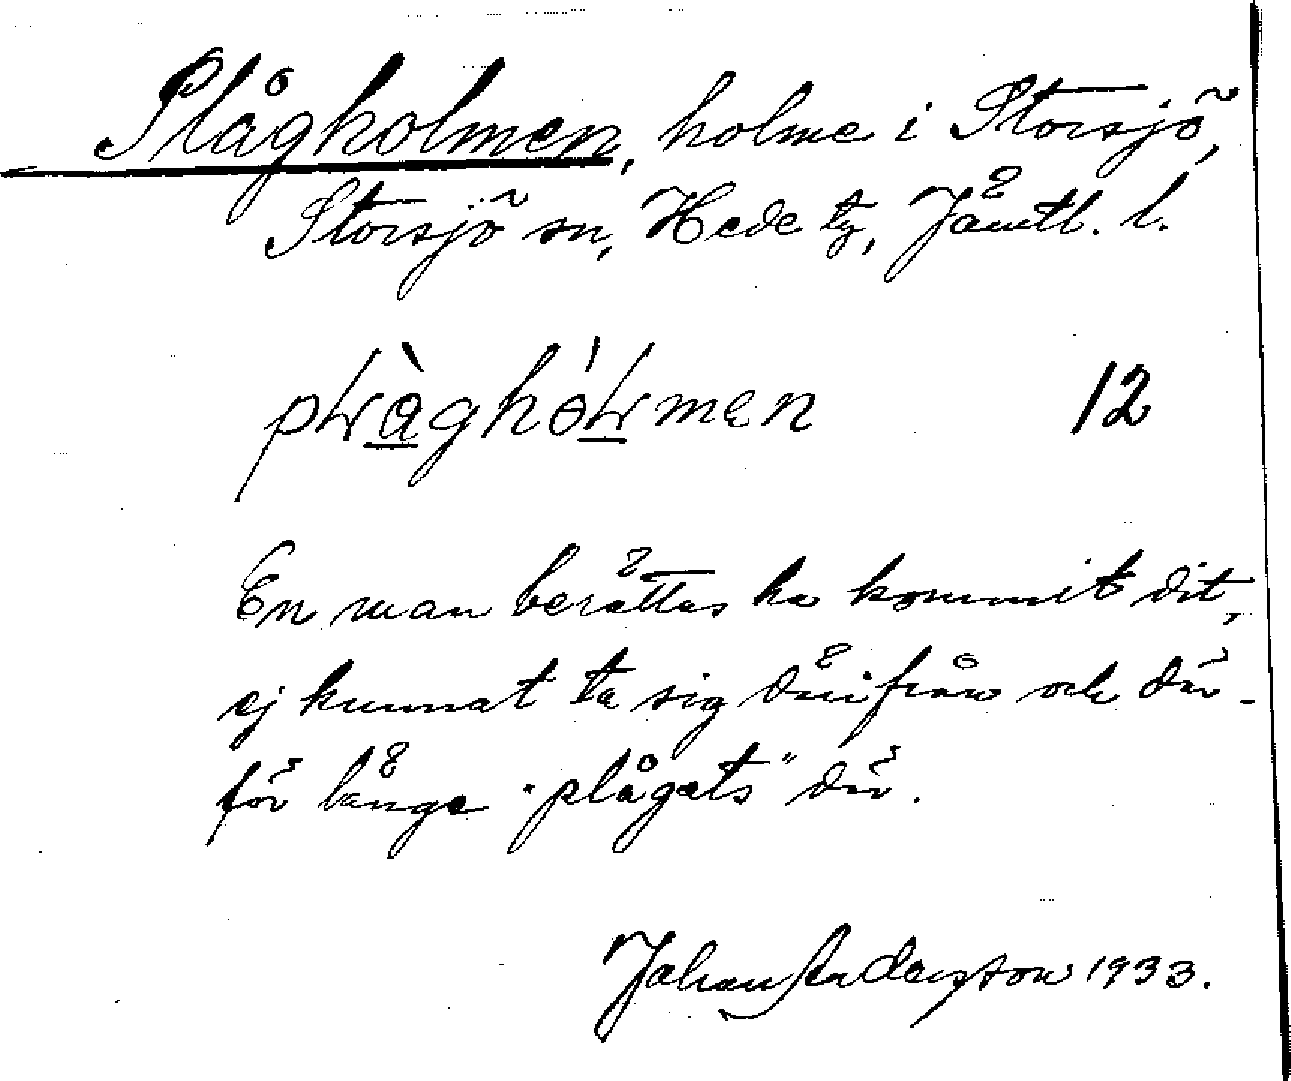 Plågholmen, holme i Storsjö,
Storsjö sn, Hede tg, Jämtl. l.
12
En man berättas ha kommit dit,
ej kunnat ta sig därifrån och där-
för länge "plågats" där.
Johan Anderson 1933.